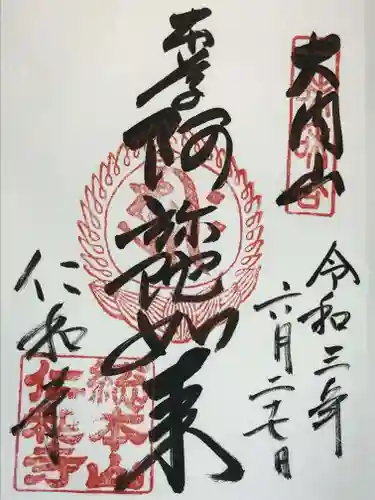 大内山
令和三年
六月二十七日
阿弥陀如来
仁和寺
総本山
仁和寺